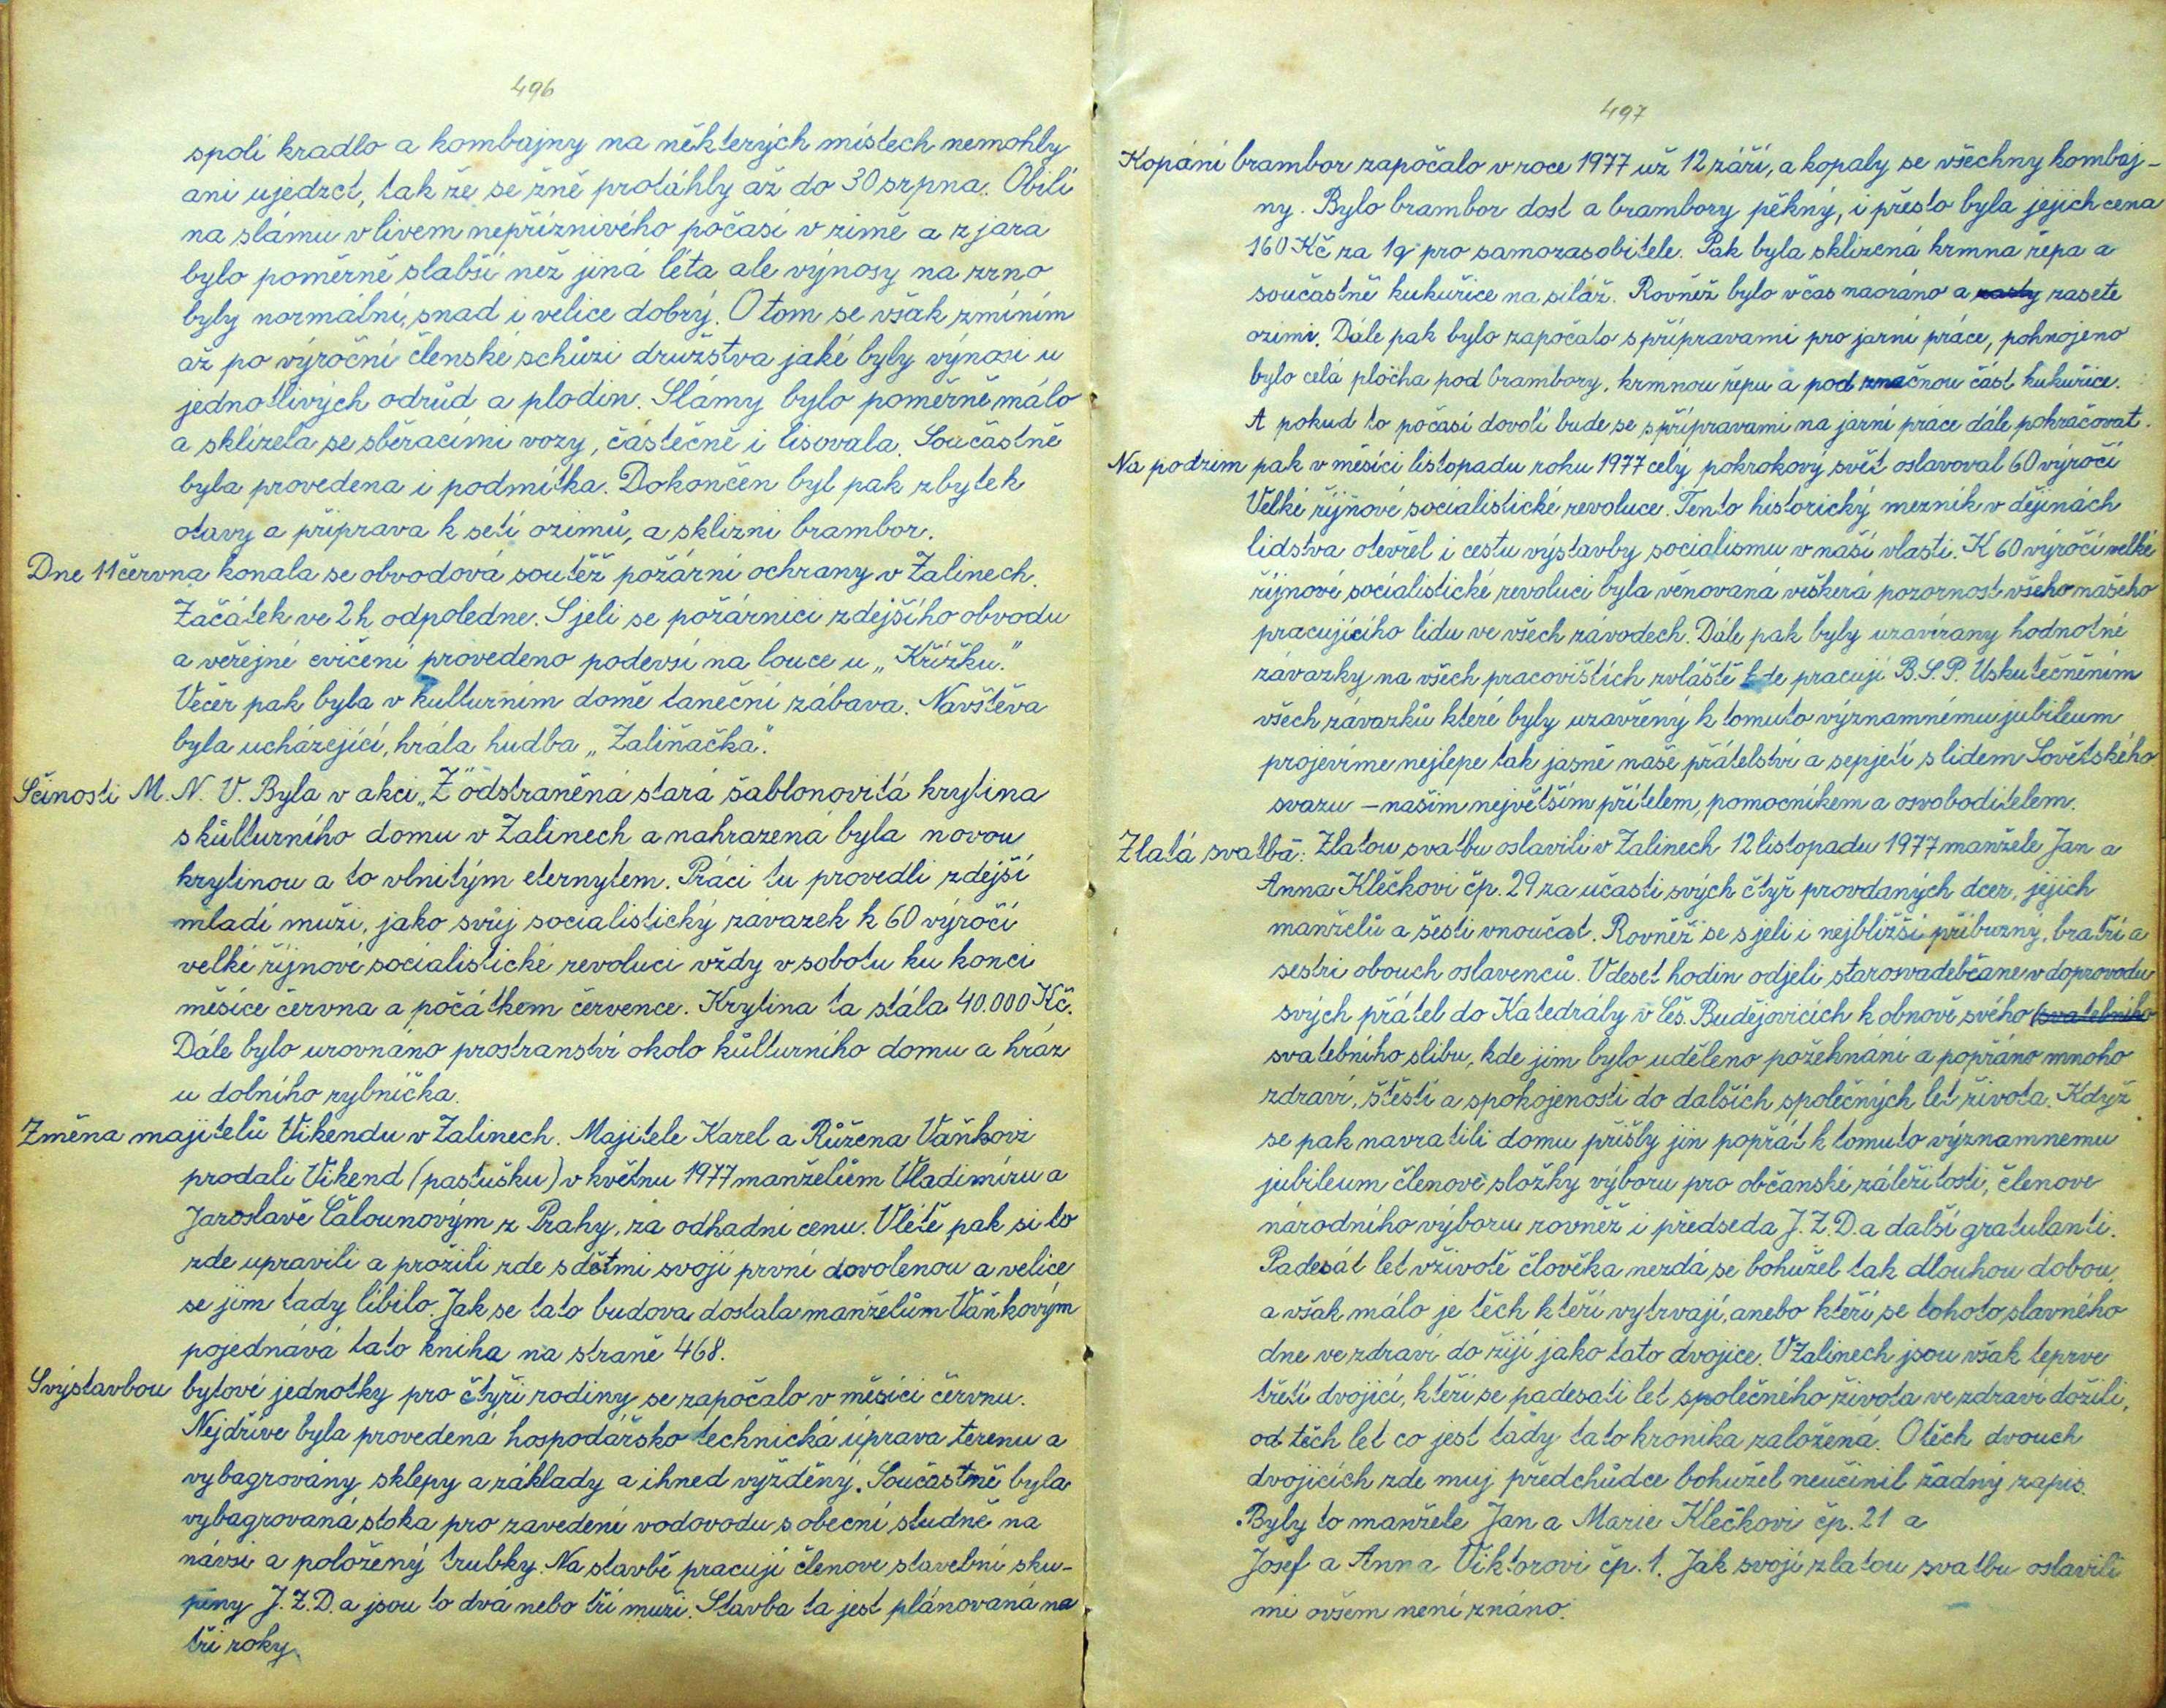 496
spolí kradlo a kombajny na některých místech nemohly
ani ujedzet, tak že se žně protáhly až do 30 srpna. Obilí
na slámu vlivem nepříznivého počasí v zimě a z jara
bylo poměrně slabší než jiná léta ale výnosy na zrno
byly normální, snad i velice dobrý. O tom se však zmíním
až po výroční členské schůzi družstva jaké byly výnosi u
jednotlivých odrůd a plodin. Slámy bylo poměrně málo
a sklízela se sběracími vozy, částečně i lisovala. Součastně
byla provedena i podmítka. Dokončen byl pak zbytek
otavy a příprava k setí ozimů, a sklizni brambor.
Dne 11 června konala se obvodová soutěž požární ochrany v Žalinech.
Začátek ve 2 h odpoledne. Sjeli se požárníci zdejšího obvodu
a veřejné cvičení provedeno podevsí na louce u „Křížku."
Večer pak byla v kulturním domě taneční zábava. Navštěva
byla ucházející, hrála hudba „Žaliňačka".
Sčinosti M. N. V. Byla v akci „Z" odstraněná stará šablonovitá krytina
s kůlturního domu v Žalinech a nahrazená byla novou
krytinou a to vlnitým eternytem. Práci tu provedli zdejší
mladí muži, jako svůj socialistický závazek k 60 výročí
velké říjnové socialistické revoluci vždy v sobotu ku konci
měsíce června a počátkem července. Krytina ta stála 40.000 Kč.
Dále bylo urovnáno prostranství okolo kůlturního domu a hráz
u dolního rybníčka.
Změna majitelů Vikendu v Žalinech. Majitele Karel a Růžena Vaňkovi
prodali Vikend (pastušku) v květnu 1977 manželům Vladimíru a
Jaroslavě Čalounovým z Prahy, za odhadní cenu. Vlétě pak si to
zde upravili a prožili zde s dětmi svojí první dovolenou a velice
se jim tady líbilo. Jak se tato budova dostala manželům Vaňkovým
pojednává tato kniha na straně 468.
Svýstavbou bytové jednotky pro čtyři rodiny se započalo v měsíci červnu.
Nejdříve byla provedená hospodářsko technická úprava terenu a
vybagrovány sklepy a základy a ihned vyzděný. Součastně byla
vybagrovaná stoka pro zavedení vodovodu s obecní studně na
návsi a položený trubky. Na stavbě pracují členove stavební sku-
piny J.Z.D. a jsou to dvá nebo tři muži. Stavba ta jest plánovaná na
tři roky.
497
Kopání brambor započalo v roce 1977 už 12 září, a kopaly se všechny kombaj-
ny. Bylo brambor dost a brambory pěkný, i přesto byla jejich cena
160 Kč za 1q pro samozasobitele. Pak byla sklizená krmna řepa a
součastně kukuřice na siláž. Rovněž bylo včas naoráno a zasety zasete
ozimi. Dále pak bylo započato s přípravami pro jarní práce, pohnojeno
bylo celá plocha pod brambory, krmnou řepu a pod značnou část kukuřice.
A pokud to počasí dovolí bude se s přípravami na jarní práce dále pokračovat.
Na podzim pak v měsíci listopadu roku 1977 celý pokrokový svět oslavoval 60 výročí
Velké říjnové socialistické revoluce. Tento historický mezník v dějinách
lidstva otevřel i cestu výstavby socialismu v naší vlasti. K 60 výročí velké
říjnové socialistické revoluci byla věnovaná veškerá pozornost všeho našeho
pracujícího lidu ve všech závodech. Dále pak byly uzavírany hodnotné
závazky na všech pracovištích zvláště kde pracují B.S.P. Uskutečněním
všech závazků které byly uzavřený k tomuto významnému jubileum
projevíme nejlepe tak jasně naše přátelství a sepjetí s lidem Sovětského
svazu – našim největším přítelem, pomocníkem a osvoboditelem.
Zlatá svatba: Zlatou svatbu oslavili v Žalinech 12 listopadu 1977 manžele Jan a
Anna Klečkovi čp. 29 za učasti svých čtyř provdaných dcer, jejich
manželů a šesti vnoučat. Rovněž se sjeli i nejbližší příbuzný, bratři a
sestri obouch oslavenců. Vdeset hodin odjeli starosvadebčane v doprovodu
svých přátel do Katedrály v Čes. Budějovicích k obnově svého svatebniho
svatebního slibu, kde jim bylo uděleno požehnání a popřáno mnoho
zdraví, štěstí a spokojenosti do dalších společných let života. Když
se pak navratili domu přišly jin popřát k tomuto významnemu
jubileum členové složky výboru pro občanské záležitosti, členove
národního výboru rovněž i předseda J.Z.D. a další gratulanti.
Padesát let v životě člověka nezdá se bohužel tak dlouhou dobou,
a však málo je těch kteří vytrvají, anebo kteří se tohoto slavného
dne ve zdraví do žijí jako tato dvojice. V Žalinech jsou však teprve
třetí dvojicí, kteří se padesati let společného života ve zdraví dožili,
od těch let co jest tady tato kronika založená. O těch dvouch
dvojicích zde muj předchůdce bohužel neučinil žadný zapis.
Byly to manžele Jan a Marie Klečkovi čp. 21 a
Josef a Anna Viktorovi čp. 1. Jak svojí zlatou svatbu oslavili
mi ovšem není známo.